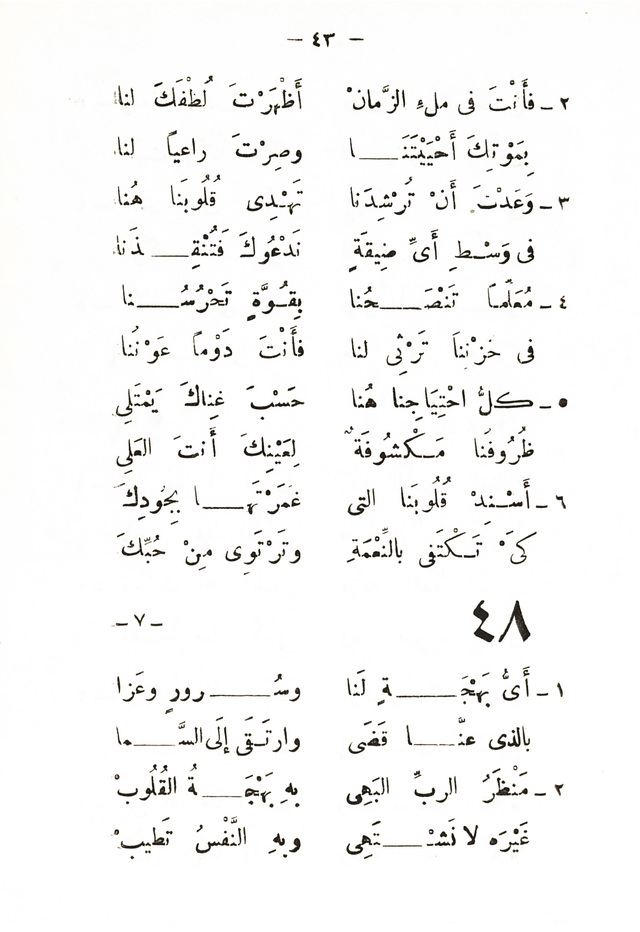 – ٤٣ –
٢ – فَأَنْتَ فى ملءِ الزَّمانْ أَظْهَرْتَ لُطْفَكَ لنا
بِمَوْتِكَ أَحْيَيْتَنَـــا وصِرْتَ راعياً لنا
٣ – وَعَدْتَ أَنْ تُرْشِدَنا تَهْدِى قُلُوبَنا هُنا
فى وَسْطِ أَىِّ ضِيقَةٍ نَدْعُوكَ فَتُنْقِـــذَنا
٤ – مُعَلِّماً تَنْصَـــحُنا بِقُوَّةٍ تَحْرُسُـــنا
فى حُزْنِنا تَرْثِى لنا فأَنْتَ دَوْماً عَوْنُنا
٥ – كلُّ احْتِيَاجِنا هُنا حَسْبَ غِناكَ يَمْتَلِى
ظُرُوفُنا مَكْشُوفَةٌ لِعَيْنِكَ أَنتَ العَلِى
٦ – أَسْنِدْ قُلُوبَنا التى غَمَرْتَهـــا بِجُودِكَ
كىْ تَكْتَفى بالنِّعْمَةِ وتَرْتَوِى مِنْ حُبِّكَ
٤٨ –٧–
١ – أَىُّ بَهْجَـــةٍ لَنا وسُـــرورٍ وعَزا
بالذى عنَّـــا قَضَى وارتَقَى إلَى السَّـــما
٢ – مَنْظَرُ الربِّ البَهِى بهِ بَهْجَـــةُ القُلُوبْ
غَيْرَه لا نَشْـــتَهِى وبهِ النَّفْسُ تَطيبْ